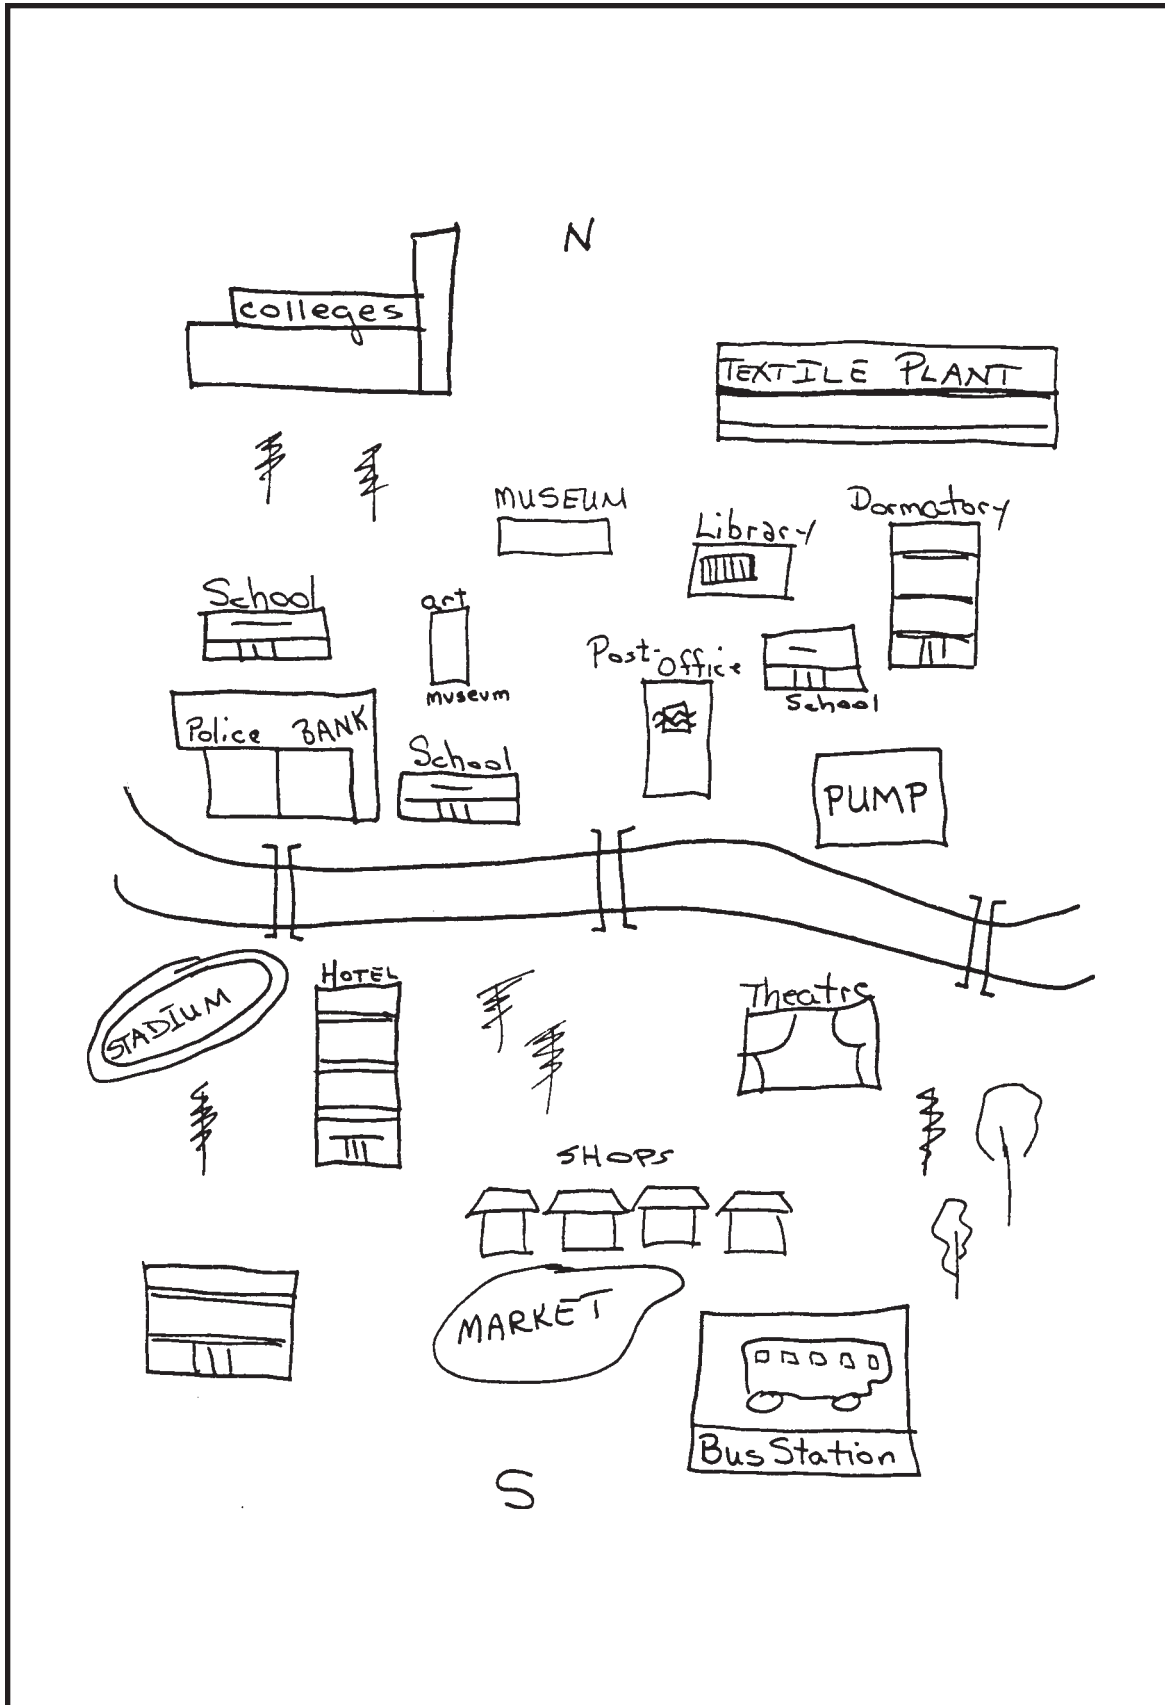 N
colleges
TEXTILE PLANT
MUSEUM
Dormatory
Library
School
art
museum
Post-Office
School
Police BANK
School
PUMP
STADIUM
HOTEL
Theatre
SHOPS
MARKET
Bus Station
S